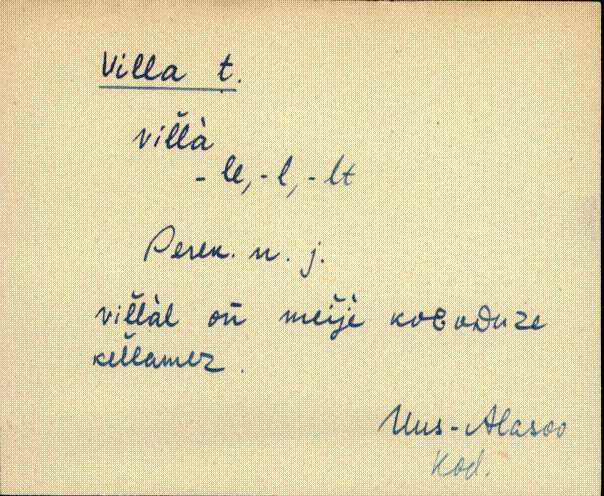 Villa t.
vil̆l̆à
-le, -l, -lt
Perek. n. j.
vil̆l̆àl on̄ meijè
kel̆l̆amez.
Uus-Alasoo
Kod.